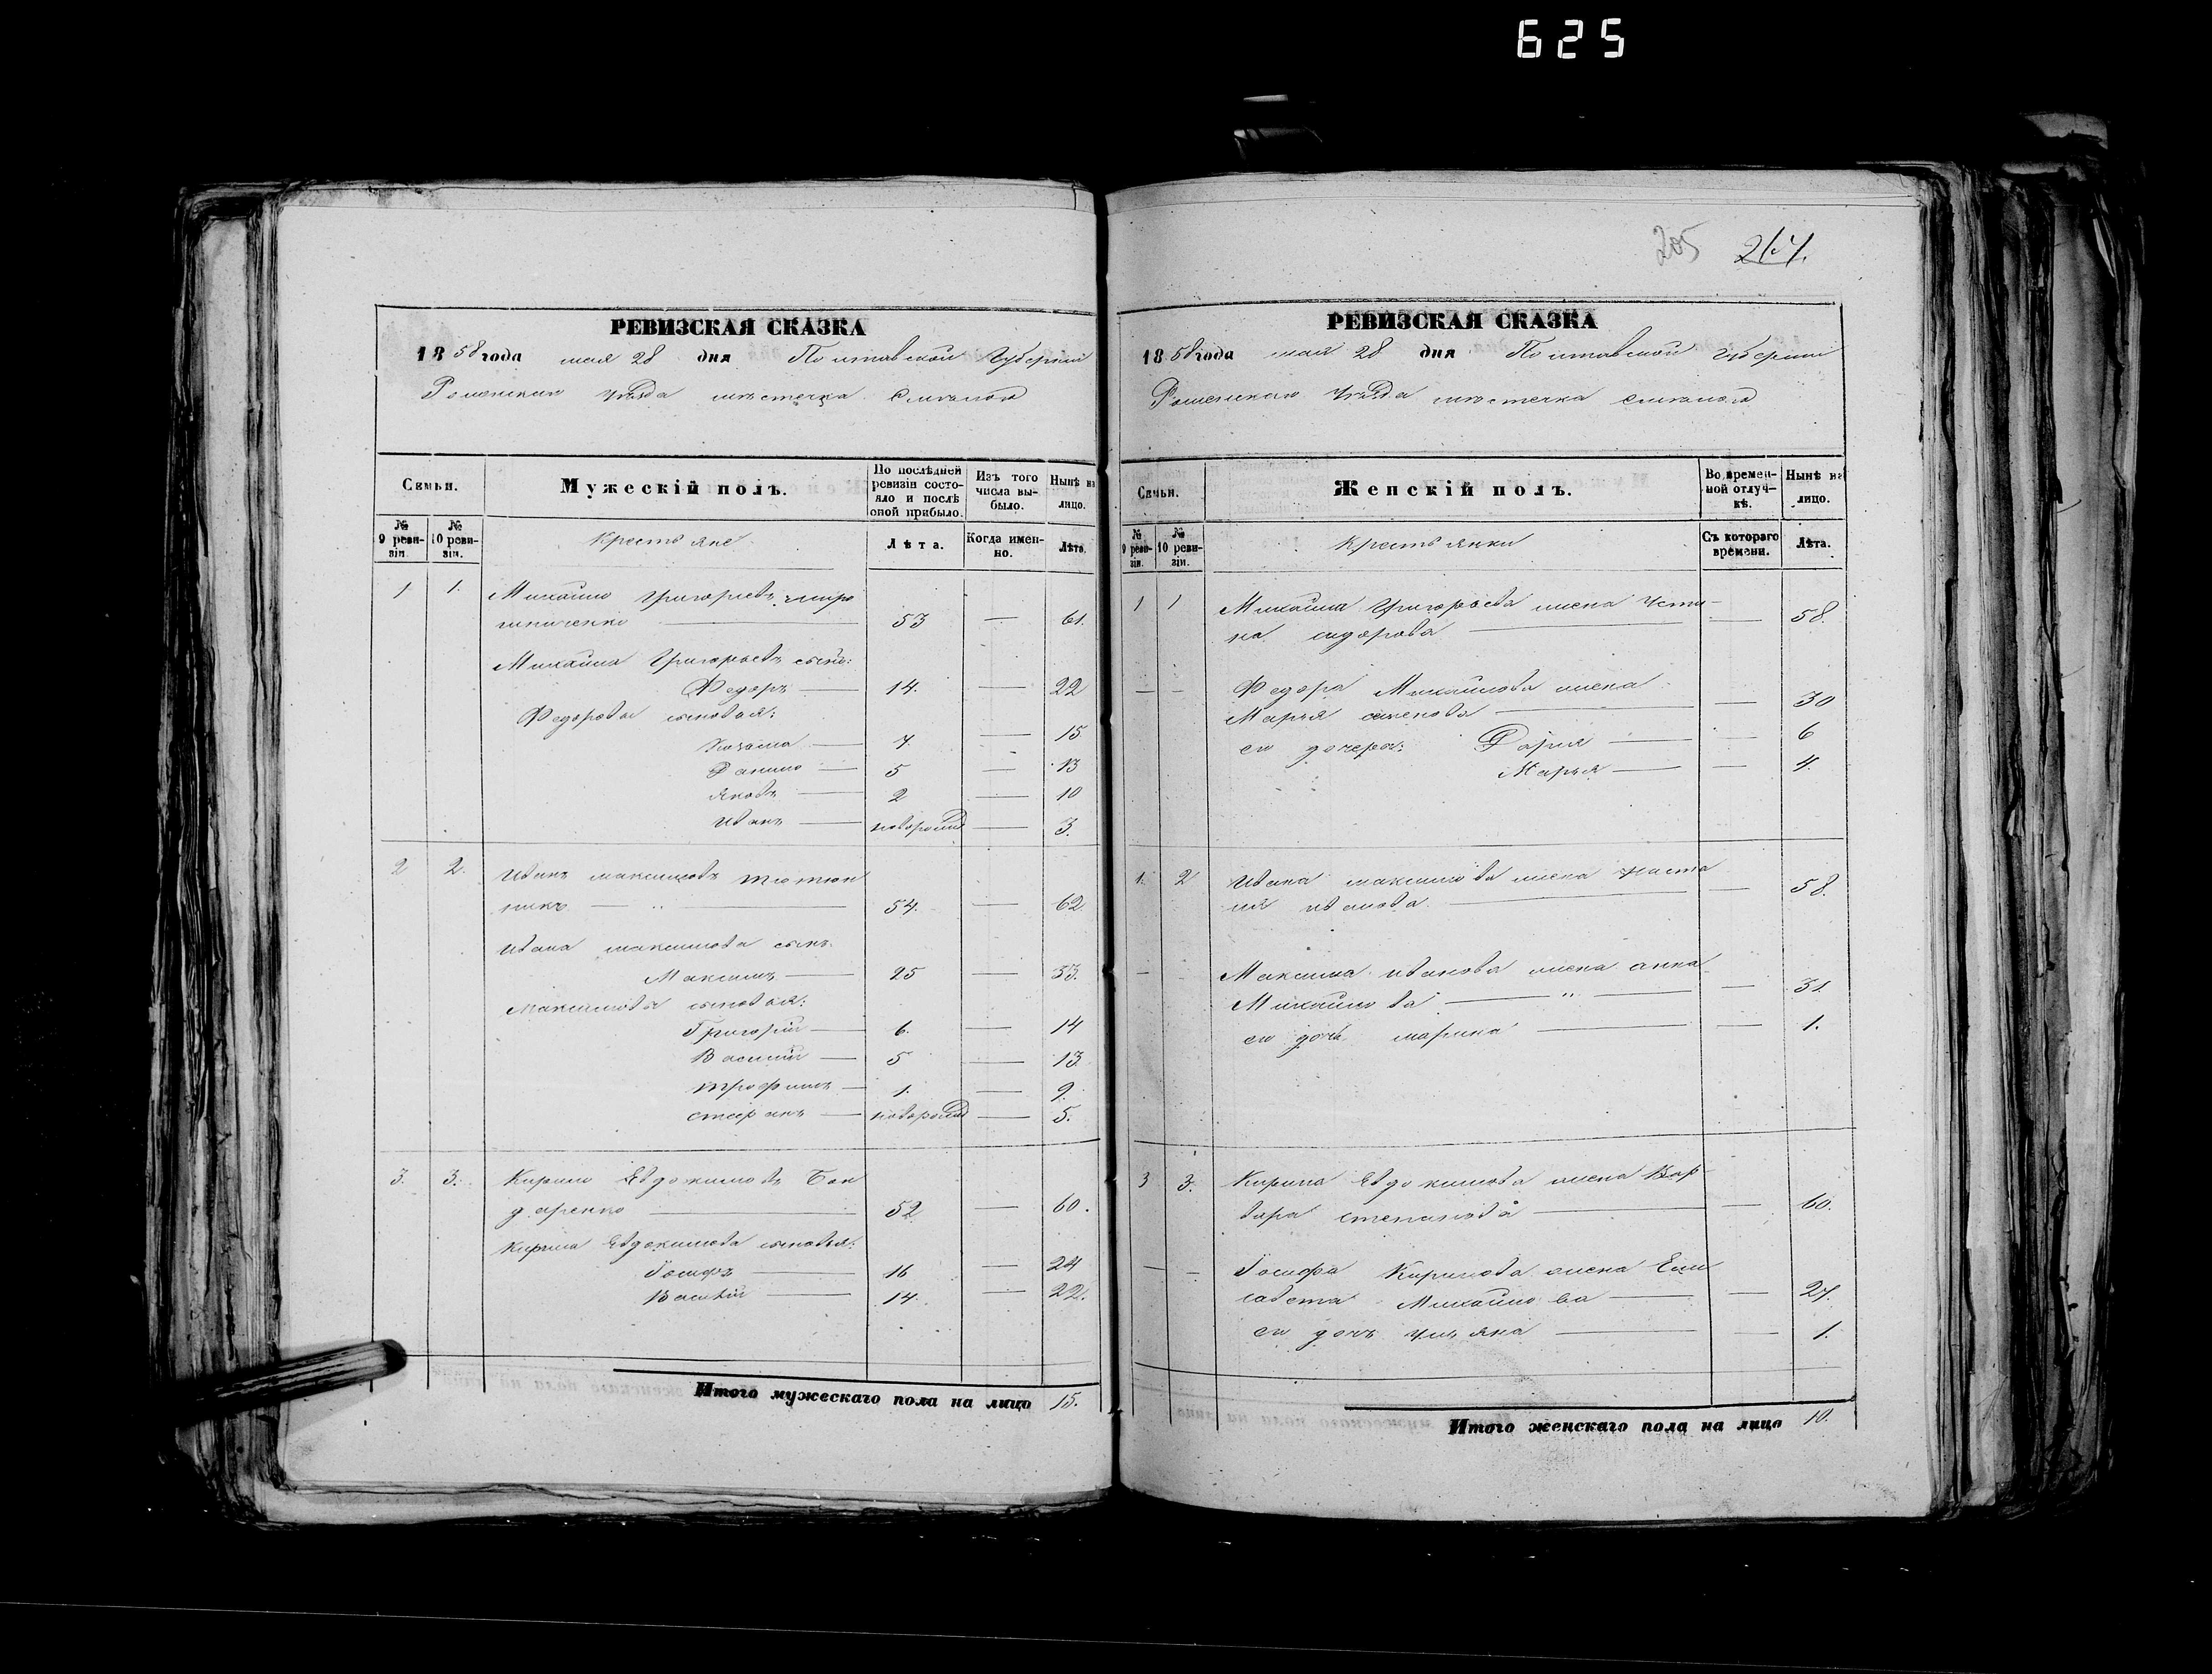 625
205 214.
РЕВИЗСКАЯ СКАЗКА
1858 года мая 28 дня Полтавской Губерніи
Роменскаго уѣзда мѣстечка Смѣлаго
Семьи.
Мужескій полъ.
По послѣдней ревизіи состояло и послѣ оной прибыло.
Изъ того числа выбыло.
Нынѣ на лицо.
№ 9 ревизіи.
№ 10 ревизіи.
Крестьяне
Лѣта.
Когда именно.
Лѣта.
1 1. Михайло Григорьевъ
53 — 61.
Михайла Григорьева сынъ:
Федоръ — 14. — 22
Федоровы сыновья:
Козьма — 7. — 15
Данило — 5 — 13
Яковъ — 2 — 10
Иванъ — новорожд — 3.
2 2. Иванъ Максимовъ Тютюн
никъ — 54. — 62
Ивана Максимова сынъ
Максимъ — 25 — 33.
Максимовы сыновья:
Григорій — 6. — 14
Василій — 5 — 13
Трофимъ — 1. — 9.
Стефанъ — новорожд — 5.
3. 3. Кирило Евдокимовъ Бон
даренко — 52 — 60.
Кирила Евдокимова сыновья:
Іосифъ — 16 — 24
Василій — 14. — 22.
Итого мужескаго пола на лицо 15.
РЕВИЗСКАЯ СКАЗКА
1858 года мая 28 дня Полтавской Губерніи
Роменскаго уѣзда мѣстечка Смѣлаго
Семьи.
Женскій полъ.
Во временной отлучкѣ.
Нынѣ на лицо.
№ 9 ревизіи.
№ 10 ревизіи.
Крестьянки
Съ котораго времени.
Лѣта.
1 1 Михайла Григорьева жена Усти-
на Сидорова — — 58.
— — Федора Михайлова жена
Марья Семенова — — 30
ея дочери: Дарія — — 6
Марья — — 4.
1. 2 Ивана Максимова жена Наста
сія Иванова — — 58.
— Максима Иванова жена Анна
Михайлова — " — — 31.
ея дочь Марина — — 1.
3 3. Кирила Евдокимова жена Вар-
вара Степанова — — 60.
— — Іосифа Кирилова жена Ели
савета Михайлова — — 24.
ея дочь Ульяна — — 1.
Итого женскаго пола на лицо 10.